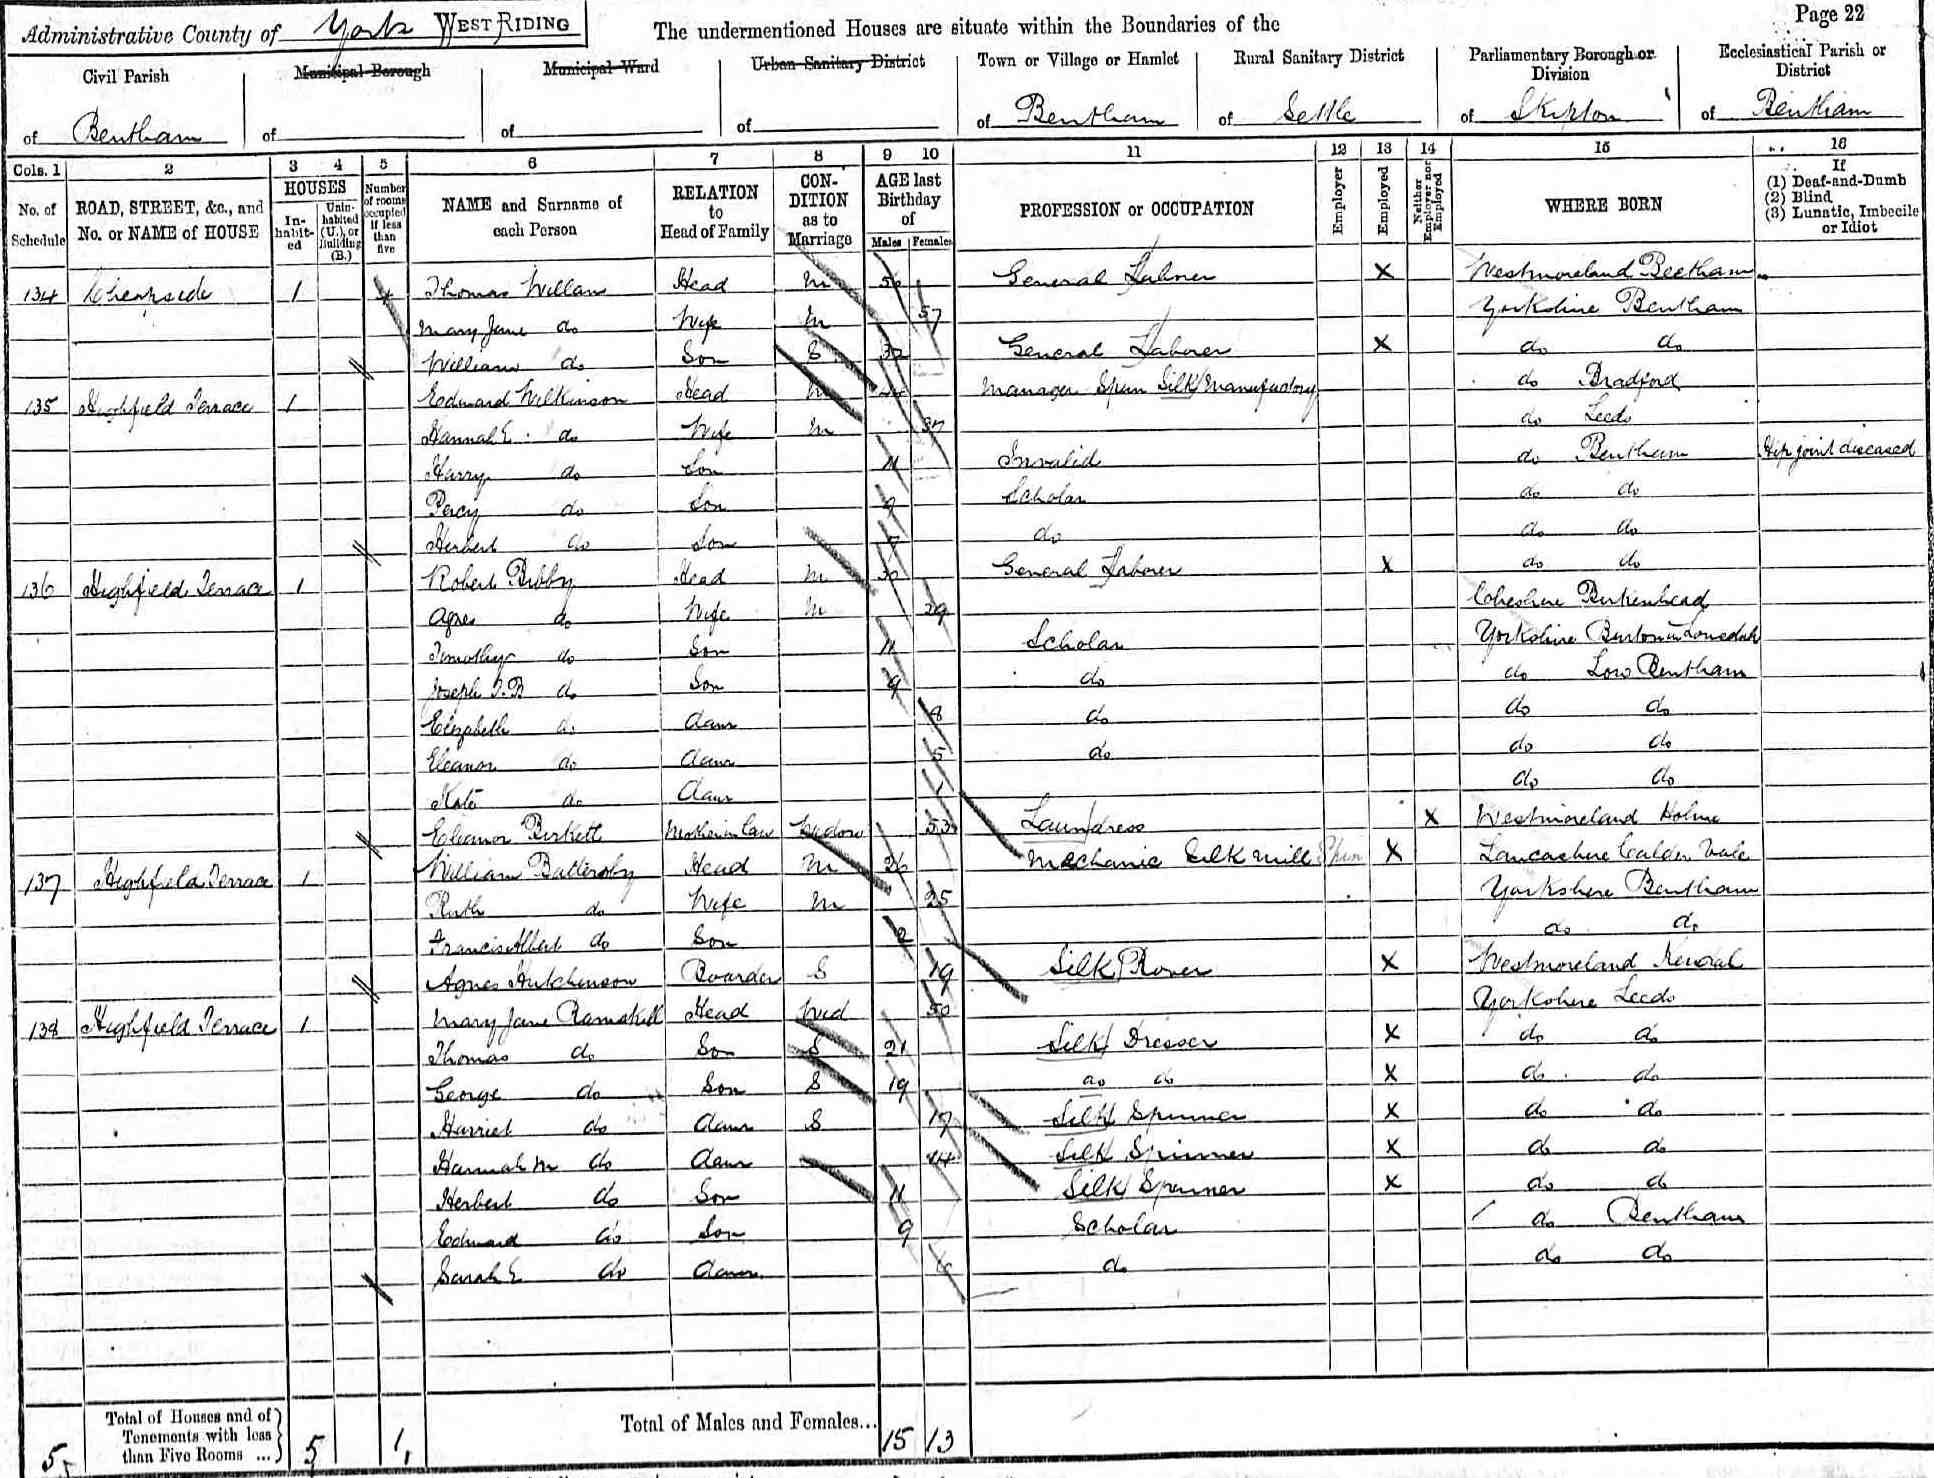 Administrative County of York WEST RIDING
The undermentioned Houses are situate within the Boundaries of the
Page 22
Civil Parish of Bentham
Municipal Borough of
Municipal Ward of
Urban Sanitary District of
Town or Village or Hamlet of Bentham
Rural Sanitary District of Settle
Parliamentary Borough or Division of Skipton
Ecclesiastical Parish or District of Bentham
Cols. 1 2 3 4 5 6 7 8 9 10 11 12 13 14 15 16
No. of Schedule
ROAD, STREET, &c., and No. or NAME of HOUSE
HOUSES
In-habit-ed
Unin-habited (U.), or Building (B.)
Number of rooms occupied if less than five
NAME and Surname of each Person
RELATION to Head of Family
CON-DITION as to Marriage
AGE last Birthday of
Males Females
PROFESSION or OCCUPATION
Employer
Employed
Neither Employer nor Employed
WHERE BORN
If
(1) Deaf-and-Dumb
(2) Blind
(3) Lunatic, Imbecile or Idiot
134 Cheapside 1 4 Thomas Willan Head M General Labourer X Westmoreland Beetham
Mary Jane do Wife M 57 Yorkshire Bentham
William do Son S General Laborer X do do
135 Highfield Terrace 1 Edward Wilkinson Head M Manager Spun Silk Manufactory do Bradford
Hannah E. do Wife M 37 do Leeds
Harry do Son 11 Invalid do Bentham Hip joint diseased
Percy do Son 9 Scholar do do
Herbert do Son 7 do do do
136 Highfield Terrace 1 Robert Bibby Head M 30 General Laborer X do do
Agnes do Wife M 29 Cheshire Birkenhead
Timothy do Son 11 Scholar Yorkshire Burton in Lonsdale
Joseph T.B do Son 9 do do Low Bentham
Elizabeth do Daur 8 do do do
Eleanor do Daur 5 do do do
Kate do Daur 1 do do
Eleanor Birkett Mother in law Widow 53 Laundress X Westmoreland Holme
137 Highfield Terrace 1 William Battersby Head M 26 Mechanic Silk Mill Spun X Lancashire Calder Vale
Ruth do Wife M 25 Yorkshire Bentham
Francis Albert do Son 2 do do
Agnes Hutchinson Boarder S 19 Silk Rover X Westmoreland Kendal
138 Highfield Terrace 1 Mary Jane Ramskill Head Wid 50 Yorkshire Leeds
Thomas do Son S 21 Silk Dresser X do do
George do Son S 19 do do X do do
Harriet do Daur S 17 Silk Spinner X do do
Hannah M do Daur 14 Silk Spinner X do do
Herbert do Son 11 Silk Spinner X do do
Edward do Son 9 Scholar do Bentham
Sarah E do Daur 6 do do do
5 Total of Houses and of Tenements with less than Five Rooms ... 5 1 Total of Males and Females... 15 13